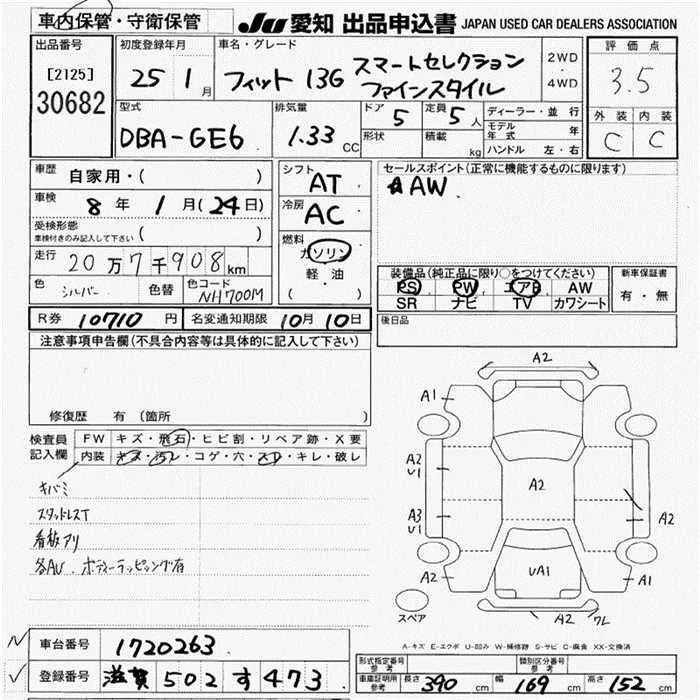 車内保管・守衛保管 JU 愛知 出品申込書 JAPAN USED CAR DEALERS ASSOCIATION
出品番号 初度登録年月 車名・グレード 2WD 評価点
[2125] 25 1月 フィット 13G スマートセレクション ・ 3.5
30682 ファインスタイル 4WD
型式 排気量 ドア 定員 ディーラー・並行 外装 内装
DBA-GE6 1.33 CC 5 5人 モデル年式 年 C C
形状 積載 kg ハンドル 左・右
車歴 自家用・( ) シフト AT セールスポイント(正常に機能するものに限ります)
車検 8年 1月(24日) 冷房 AC ☆AW
受検形態
車検付きのみ記入して下さい ( ) 燃料 ガソリン
走行 20万7千908km 軽・油 装備品(純正品に限り○をつけてください) 新車保証書
色 シルバー 色替 色コード NH700M ( ) PS PW エアB AW 有・無
SR ナビ TV カワシート
R券 10710円 名変通知期限 10月10日 後日品
注意事項申告欄(不具合内容等は具体的に記入して下さい)
修復歴 有 (箇所
検査員 FW キズ・飛石・ヒビ割・リペア跡・X要
記入欄 内装 キズ・汚レ・コゲ・穴・スレ・キレ・破レ
キバミ
スタッドレスT
看板アリ
各AU. ボディーラッピング有
A2
A1
A2
U1 A2
A3
U1 A2
A2 UA1 A1
スペア A2 ワレ
A-キズ E-エクボ U-凹み W-補修跡 S-サビ C-腐食 XX-交換済
車台番号 1720263 形式指定番号 参考 類別区分番号 参考
登録番号 滋賀 502 す 473 車庫証明用 参考 長さ 390 cm 幅 169 cm 高さ 152 cm